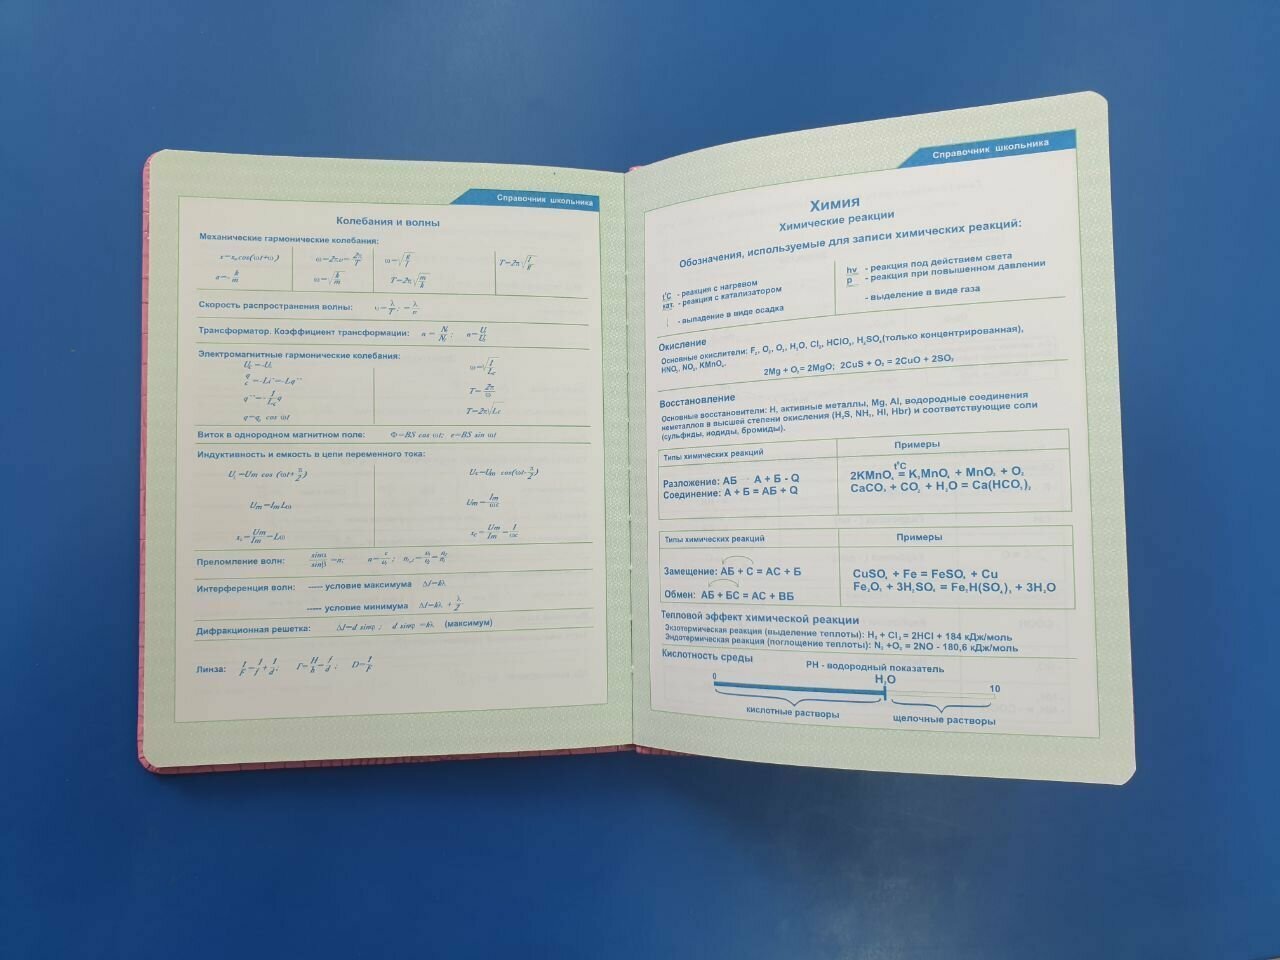 Справочник школьника
Колебания и волны
Механические гармонические колебания:
x=x₀cos(ωt+ω)
ω=2πυ= 2π/T
ω=√g/l
T=2π√l/g
a=- k/m
ω=√k/m
T=2π√m/k
Скорость распространения волны: υ= λ/T ; = λ/υ
Трансформатор. Коэффициент трансформации:
Электромагнитные гармонические колебания:
T= 2π/ω
T=2π√Lc
q=q₀ cos ωt
Виток в однородном магнитном поле: Ф=BS cos ωt; e=BS sin ωt
Индуктивность и емкость в цепи переменного тока:
Um=ImLω
Um= Im/ωc
Преломление волн: sinα/sinβ =n;
Интерференция волн: ----- условие максимума Δl=kλ
----- условие минимума Δl=kλ + λ/2
Дифракционная решетка: Δl=d sinφ ; d sinφ =kλ (максимум)
Линза: 1/F = 1/f + 1/d ; Г= H/h = f/d ; D= 1/F
Справочник школьника
Химия
Химические реакции
Обозначения, используемые для записи химических реакций:
t°C - реакция с нагревом
кат. - реакция с катализатором
↓ - выпадение в виде осадка
hv - реакция под действием света
p - реакция при повышенном давлении
- выделение в виде газа
Окисление
Основные окислители: F₂, O₂, O₃, H₂O, Cl₂, HClO₄, H₂SO₄(только концентрированная),
HNO₃, NO₂, KMnO₄.
2Mg + O₂= 2MgO; 2CuS + O₂ = 2CuO + 2SO₂
Восстановление
Основные восстановители: H, активные металлы, Mg, Al, водородные соединения
неметаллов в высшей степени окисления (H₂S, NH₃, HI, Hbr) и соответствующие соли
(сульфиды, иодиды, бромиды).
Типы химических реакций Примеры
Разложение: АБ → А + Б - Q
Соединение: А + Б = АБ + Q
t°C
2KMnO₄ = K₂MnO₄ + MnO₂ + O₂
CaCO₃ + CO₂ + H₂O = Ca(HCO₃)₂
Типы химических реакций Примеры
Замещение: АБ + С = АС + Б
Обмен: АБ + БС = АС + ВБ
CuSO₄ + Fe = FeSO₄ + Cu
Fe₂O₃ + 3H₂SO₄ = Fe₂H(SO₄)₃ + 3H₂O
Тепловой эффект химической реакции
Экзотермическая реакция (выделение теплоты): H₂ + Cl₂ = 2HCl + 184 кДж/моль
Эндотермическая реакция (поглощение теплоты): N₂ +O₂ = 2NO - 180,6 кДж/моль
Кислотность среды
PH - водородный показатель
0 H₂O 10
кислотные растворы щелочные растворы